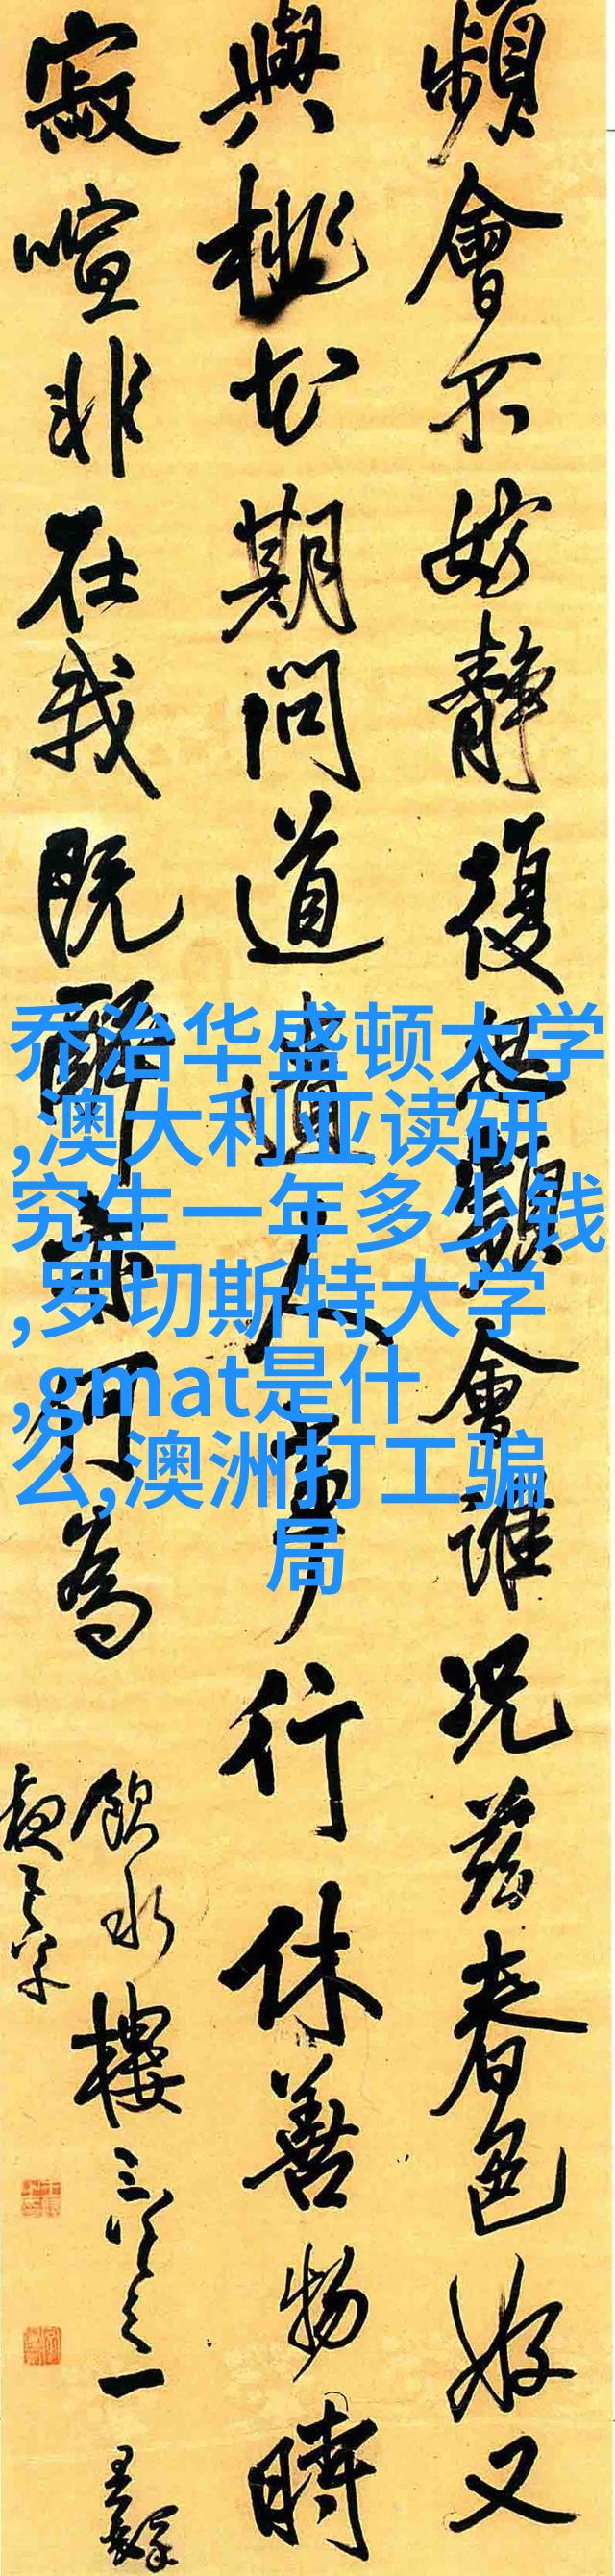 頻會不妨靜復起頻會誰況茲春色好又
與桃花期問道道人事行休善物時
寂喧非在我既醉亦何為
飲水樓三次之一
王鐸
乔治华盛顿大学
,澳大利亚读研
究生一年多少钱
,罗切斯特大学
,gmat是什
么,澳洲打工骗
局